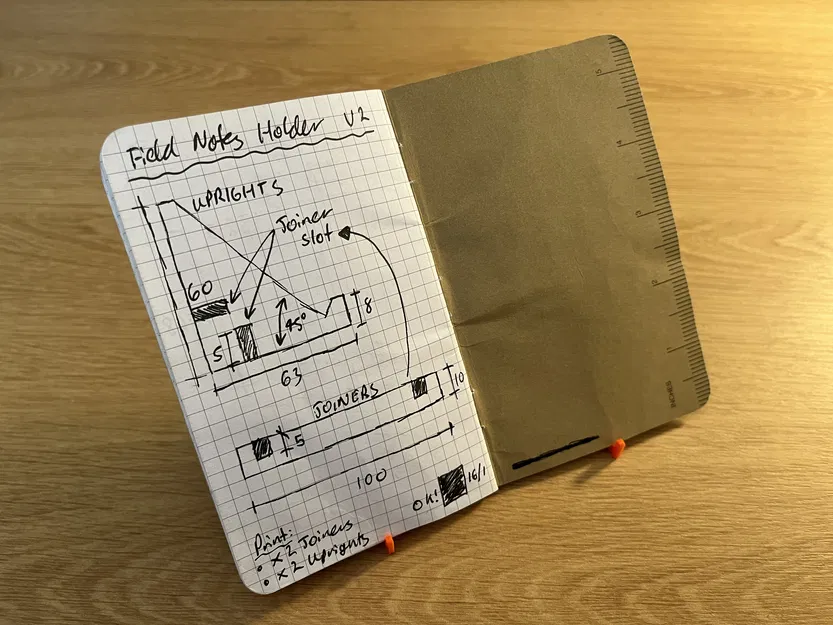 Field Notes Holder V2
UPRIGHTS
Joiner
slot
60
45°
8
5
63
JOINERS
10
5
100
OK!
16/1
Print:
• x2 Joiners
• x2 Uprights
5
4
3
2
INCHES